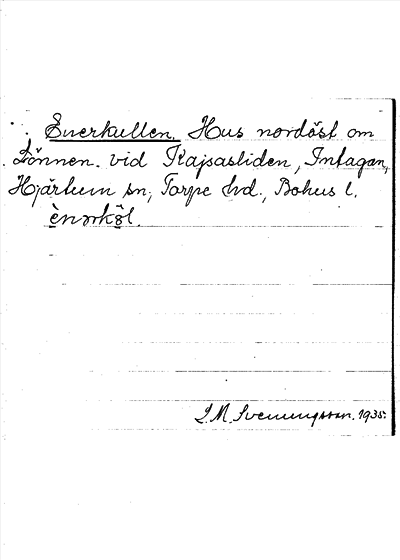 Enerkullen. Hus nordöst om
Lönnen. vid Kajsasliden, Intagan,
Hjärtum sn, Torpe hd., Bohus l.
ènərkö̀l.
S. M. Svenungsson. 1935.